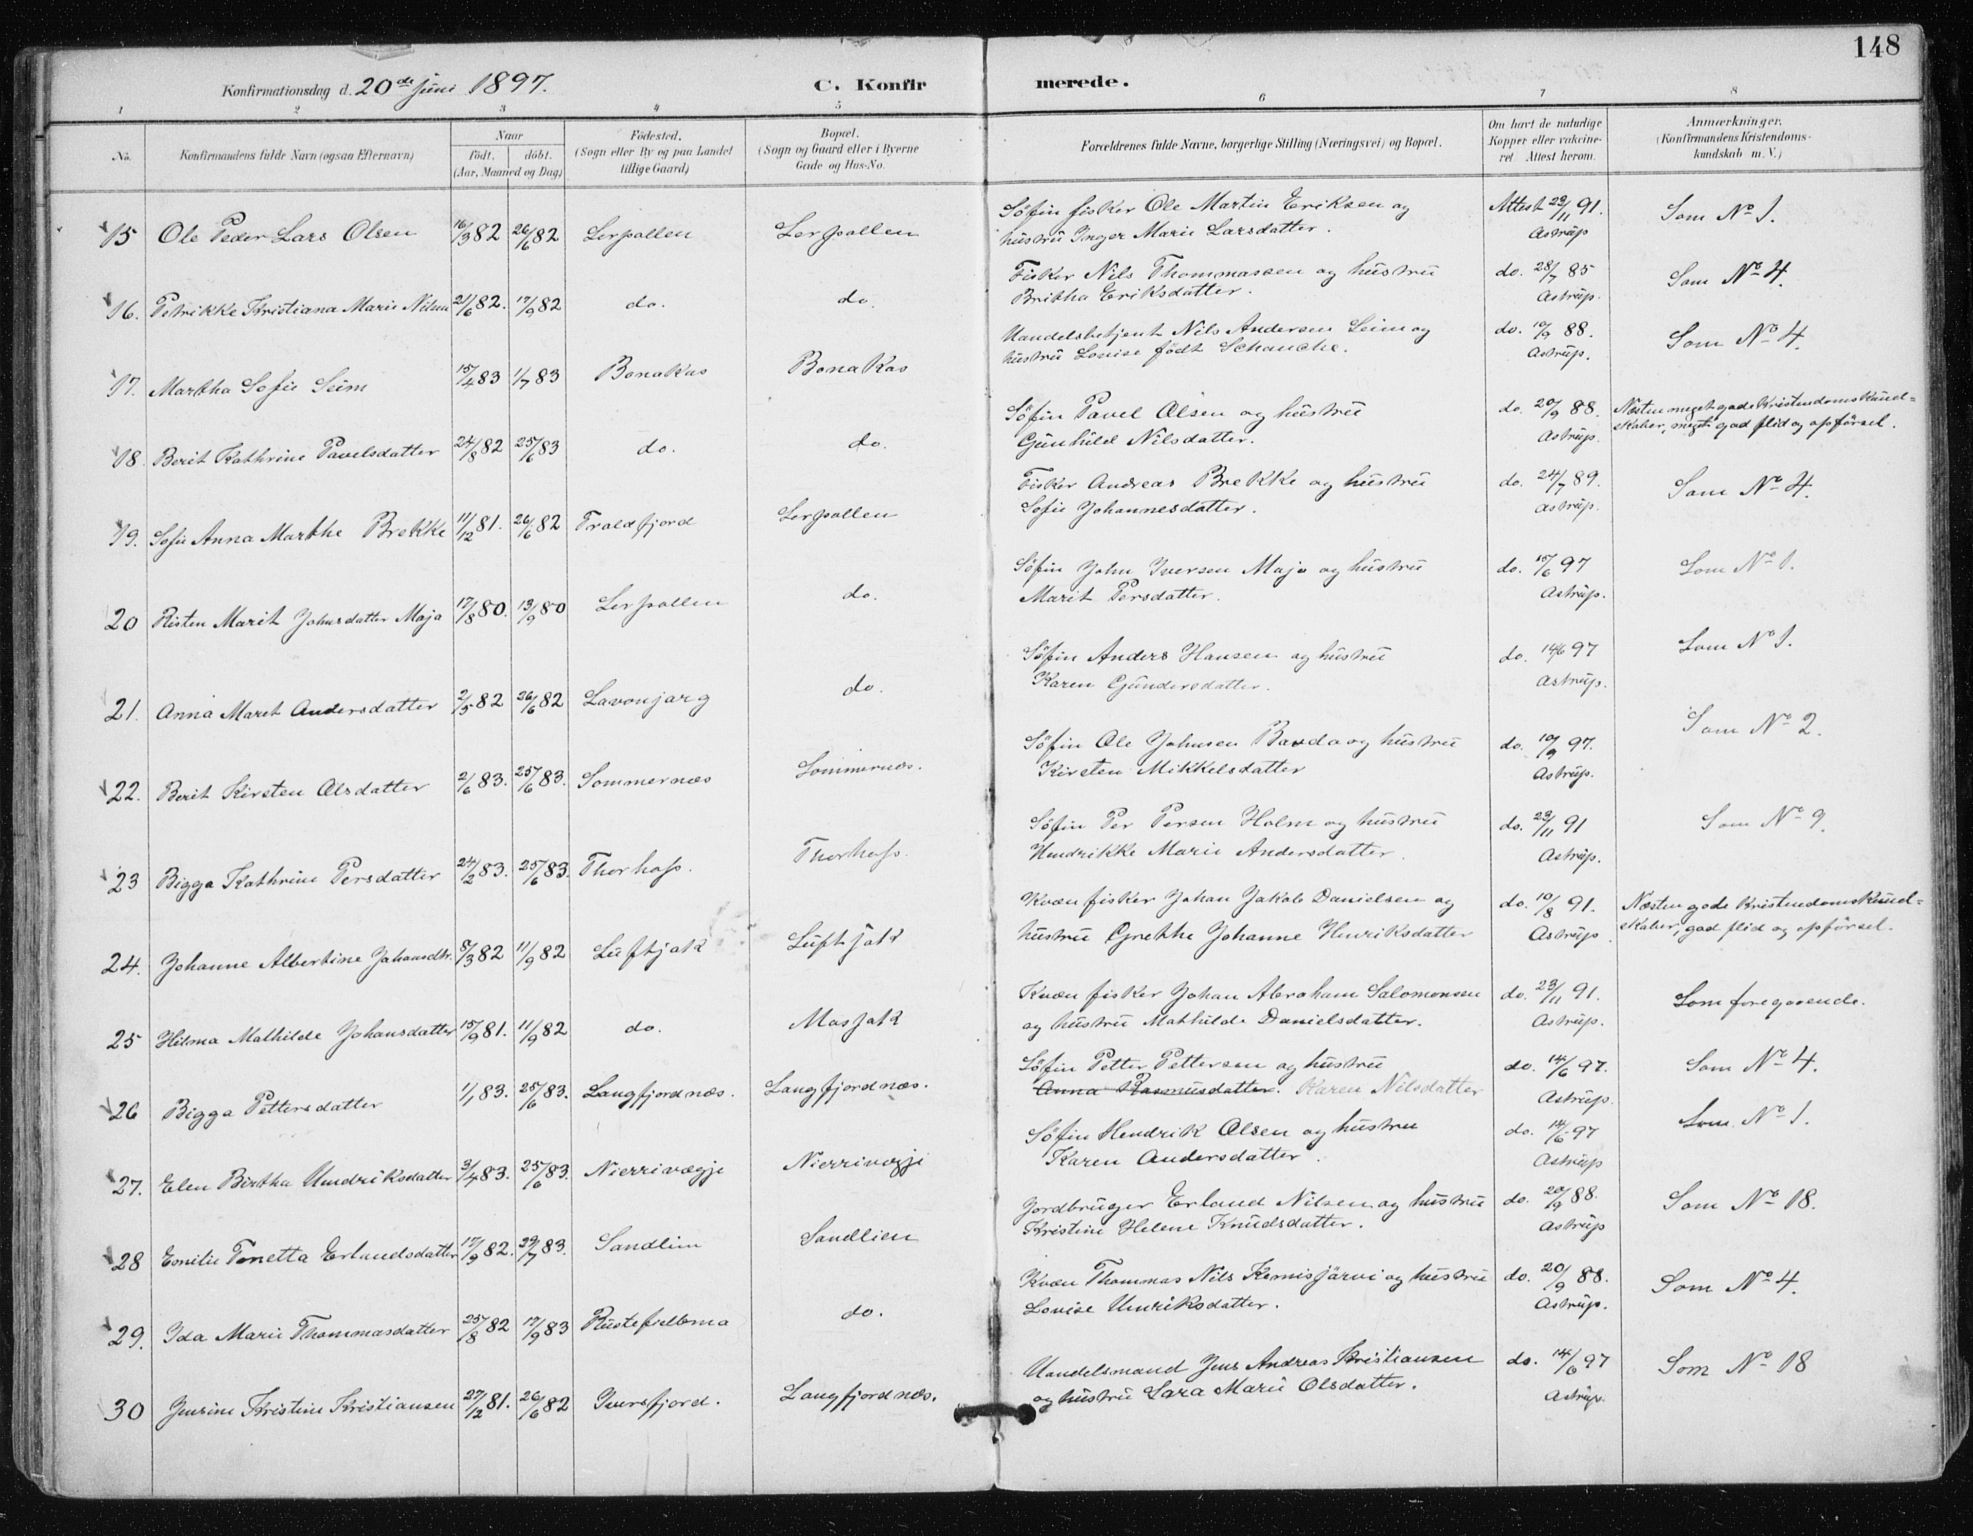 148
Konfirmationsdag d. 20de juni 1897.
C. Konfirmerede.
1 2 3 4 5 6 7 8
No.
Konfirmandens fulde Navn (ogsaa Efternavn)
Naar
født. døbt.
(Aar, Maaned og Dag)
Fødested.
(Sogn eller By og paa Landet
tillige Gaard)
Bopæl.
(Sogn og Gaard eller i Byerne
Gade og Hus-No.
Forældrenes fulde Navne, borgerlige Stilling (Næringsvei) og Bopæl.
Om havt de naturlige
Kopper eller vakcine-
ret Attest herom.
Anmærkninger.
(Konfirmandens Kristendoms-
kundskab m. V.)
15 Ole Peder Lars Olsen 16/3 82 26/6 82 Lerpollen Lerpollen
Søfin fisker Ole Martin Eriksen og Attest 23/11 91. Som No 1.
hustru Inger Marie Larsdatter. Astrup
16. Petrikke Kristiana Marie Nilsen 21/6 82. 17/9 82 do. do.
Fisker Nils Thommassen og hustru do. 28/7 85 Som No 4.
Britha Eriksdatter. Astrup.
17. Martha Sofie Seim 15/4 83 1/7 83 Bonakas Bonakas
Handelsbetjent Nils Andersen Seim og do. 10/9 88. Som No 4.
hustru Louise født Schanche. Astrup.
18. Berit Kathrine Pavelsdatter 24/8 82 25/6 83 do. do.
Søfin Pavel Olsen og hustru do. 20/9 88. Næsten meget gode Kristendomskund=
Gunhild Nilsdatter. Astrup. skaber, megt god flid og opførsel.
19. Sofie Anna Marthe Brekke 11/12 81. 26/6 82 Troldfjord Lerpollen
Fisker Andreas Brekke og hustru do. 24/7 89. Som No 4.
Sofie Johannesdatter. Astrup.
20 Risten Marit Johnsdatter Majo 17/8 80. 13/9 80 Lerpollen do.
Søfin John Iversen Majo og hustru do. 15/6 97 Som No 1.
Marit Persdatter. Astrup.
21. Anna Maret Andersdatter 2/5 82 26/6 82 Lavonjarg do.
Søfin Anders Hansen og hustru do. 14/6 97 Som No 1.
Karen Gundersdatter. Astrup.
22. Berit Kirsten Olsdatter 2/6 83. 25/6 83. Sommernæs Sommernæs.
Søfin Ole Johnsen Bavdo og hustru do. 10/9 97. Som No 2.
Kirsten Mikkelsdatter Astrup.
23 Bigga Kathrine Persdatter 24/2 83. 25/6 83. Thorhop. Thorhop.
Søfin Per Persen Holm og hustru do. 23/11 91 Som No 9.
Hendrikke Marie Andersdatter. Astrup.
24. Johanne Albertine Johansdtr. 8/3 82 11/9 82 Luftjok Luftjok
Kvæn fisker Johan Jakob Danielsen og do. 10/8 91. Næsten gode Kristendomskund=
hustru Grethe Johanne Henriksdatter Astrup. skaber, god flid og opførsel.
25 Hilma Mathilde Johansdatter 15/9 81. 11/9 82 do. Masjok
Kvæn fisker Johan Abraham Salomonsen do. 23/11 91. Som foregaaende.
og hustru Mathilde Danielsdatter. Astrup.
26 Bigga Pettersdatter 1/1 83. 25/6 83. Langfjordnæs. Langfjordnæs.
Søfin Petter Pettersen og hustru do. 14/6 97. Som No 4.
Anna Rasmusdatter. Karen Nilsdatter Astrup.
27. Elen Birtha Hendriksdatter 3/4 83. 25/6 83. Nierrivægje Nierrivægje
Søfin Hendrik Olsen og hustru do. 14/6 97 Som No 1.
Karen Andersdatter. Astrup
28 Emilie Tonetta Erlandsdatter 17/9 82. 29/7 83. Sandlien Sandlien
Jordbruger Erland Nilsen og hustru do. 20/9 88. Som No 18.
Kristine Helene Knudsdatter. Astrup
29. Ida Marie Thommasdatter 25/8 82 17/9 83 Rustefjelbma do.
Kvæn Thommas Nils Kemisjärvi og hustru do. 20/9 88. Som No 4.
Lovise Henriksdatter. Astrup.
30 Jensine Kristine Kristiansen 27/12 81. 26/6 82 Iversfjord. Langfjordnæs.
Handelsmand Jens Andreas Kristiansen do. 14/6 97 Som No 18
og hustru Sara Marie Olsdatter. Astrup.